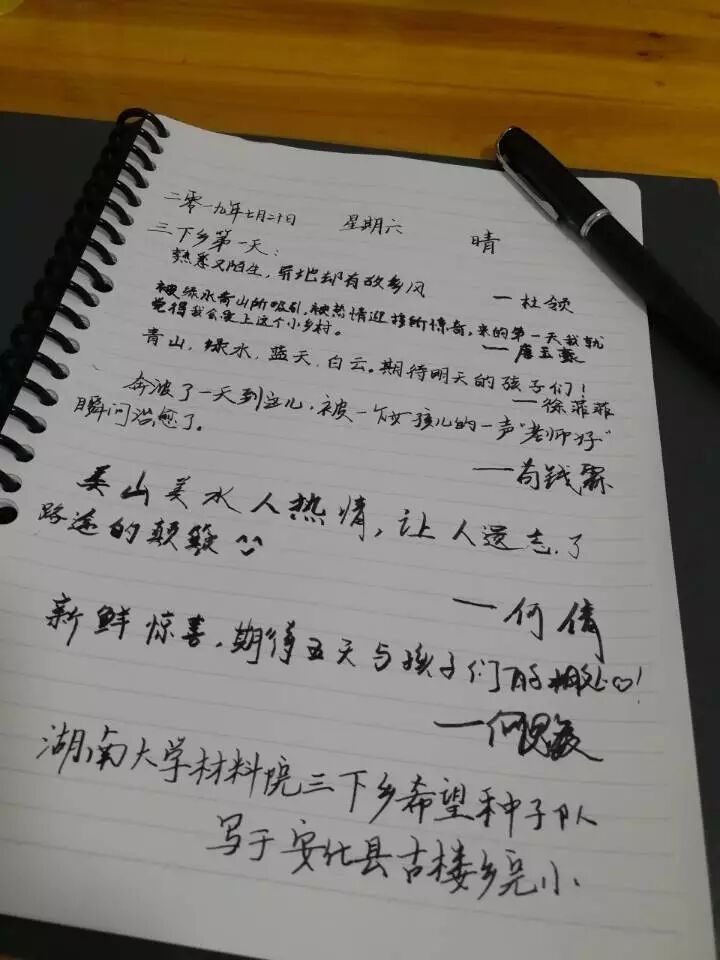 二零一九年七月二十日 星期六 晴
三下乡第一天:
熟悉又陌生，异地却有故乡风
一杜领
被绿水青山所吸引,被热情迎接所惊奇,来的第一天我就
觉得我会爱上这个小乡村。
一唐玉
青山,绿水,蓝天,白云。期待明天的孩子们！
一徐菲菲
奔波了一天到这儿,被一个女孩儿的一声“老师好”
瞬间治愈了。
一苟钱
美山美水人热情,让人遗忘了
路途的颠簸
一何倩
新鲜惊喜,期待五天与孩子们的相处！
一何
湖南大学材料院三下乡希望种子队
写于安化县古楼乡完小